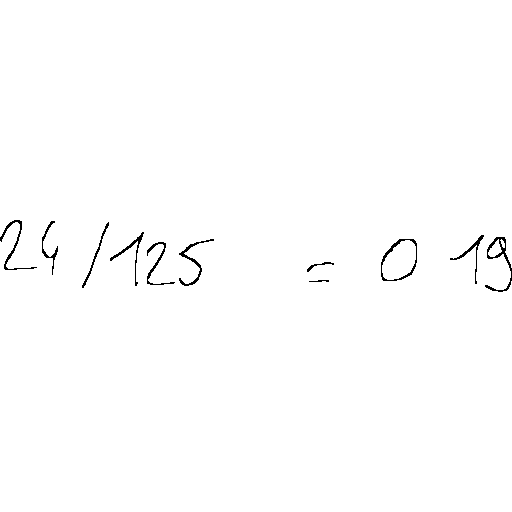 24/125 = 0 19